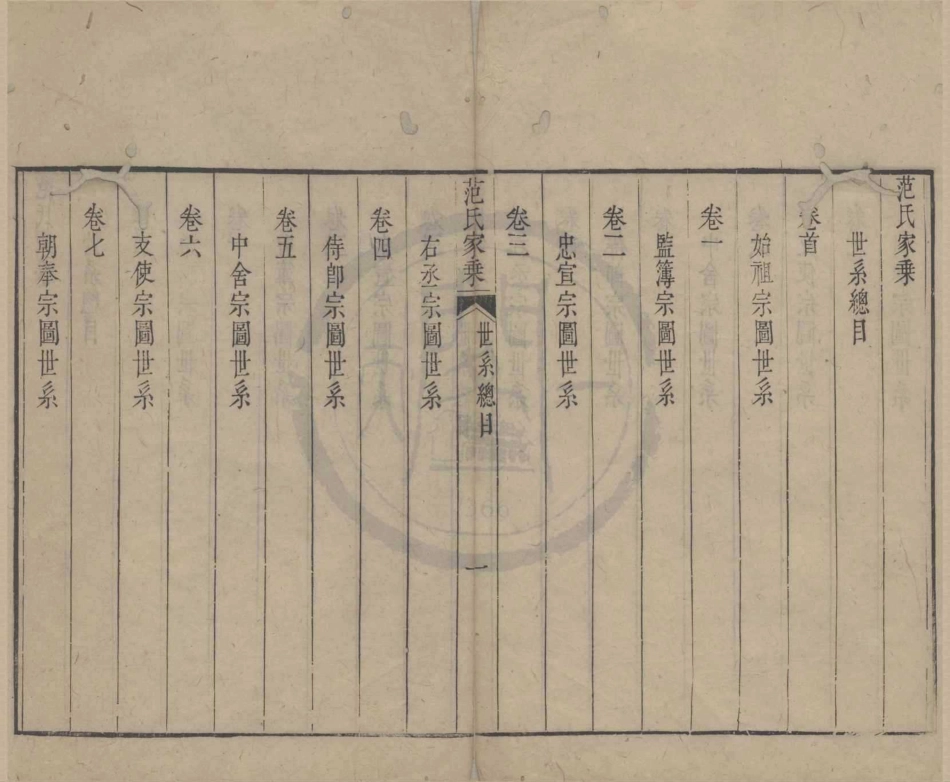 范氏家乘
世系總目
卷首
始祖宗圖世系
卷一
監簿宗圖世系
卷二
忠宣宗圖世系
卷三
范氏家乘 世系總目 一
右丞宗圖世系
卷四
侍郎宗圖世系
卷五
中舍宗圖世系
卷六
支使宗圖世系
卷七
朝奉宗圖世系